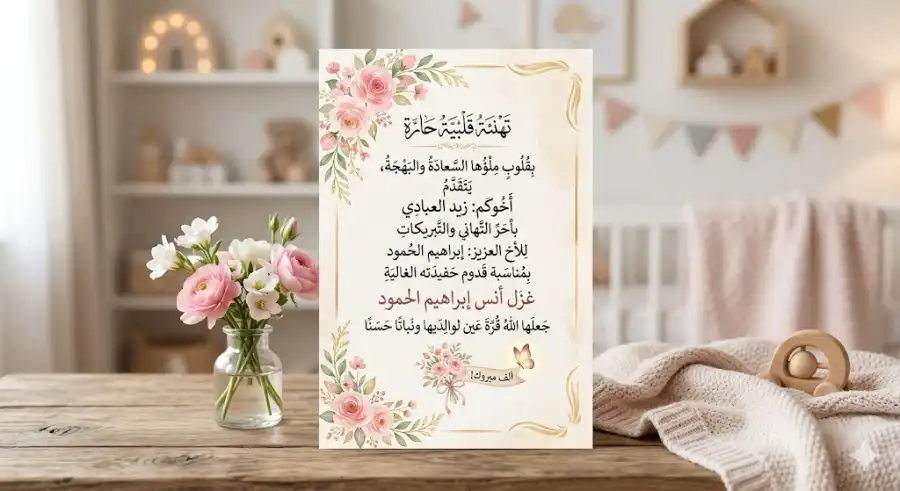 تَهْنِئَةٌ قَلْبِيَّةٌ حَارَّةٌ
بِقُلُوبٍ مِلْؤُها السَّعادَةُ والبَهْجَةُ،
يَتَقَدَّمُ
أَخُوكم: زيد العبادِي
بأحَرِّ التَّهاني والتَّبريكاتِ
لِلأخ العزيز: إبراهيم الحُمود
بِمُناسَبة قدوم حَفيدَته الغاليَةِ
غزَل أنس إبراهيم الحمود
جَعلَها اللهُ قُرَّةَ عَين لوالِدَيها ونَباتًا حَسَنًا
ألف مبروك!